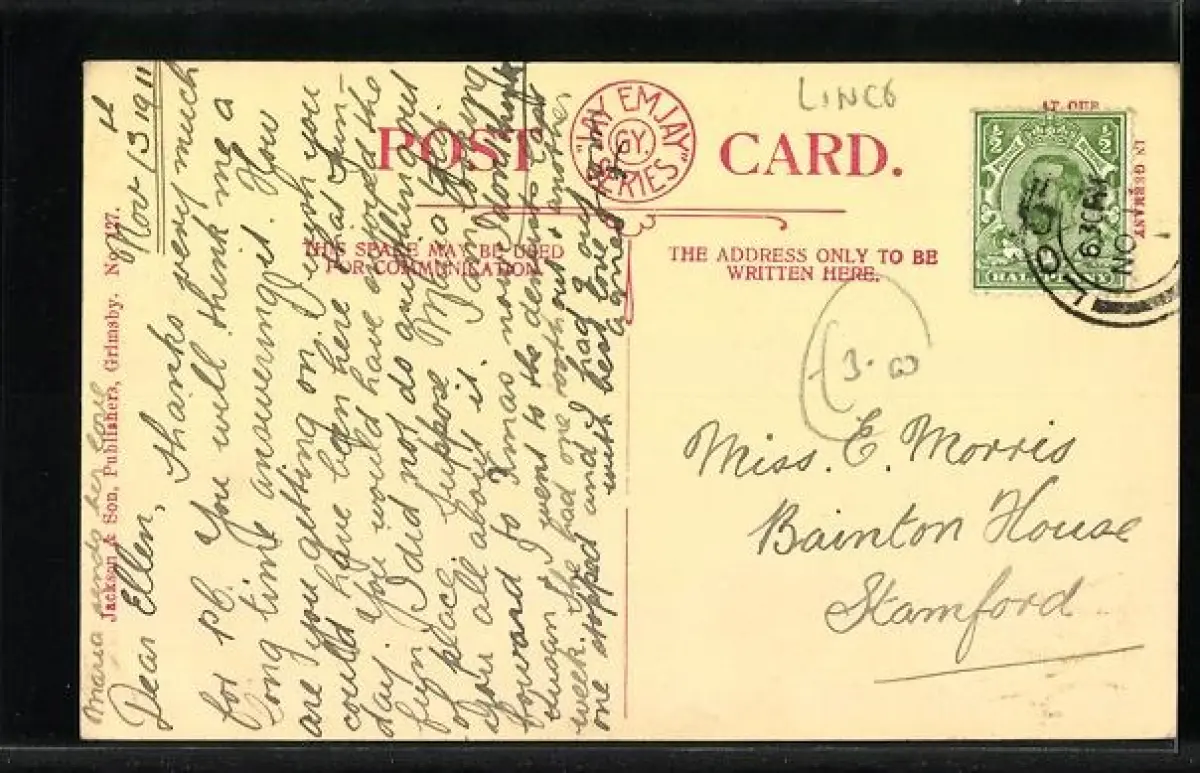 LINCS
POST CARD.
"JAY EM JAY" SERIES
GY.
THIS SPACE MAY BE USED
FOR COMMUNICATION.
THE ADDRESS ONLY TO BE
WRITTEN HERE.
IN GERMANY
½ ½
HALFPENNY
3-00
Miss. E. Morris
Bainton House
Stamford
Jackson & Son, Publishers, Grimsby. No 127.
Maria sends her love
Nov 13th 1911
Dear Ellen, thanks very much
for pc. You will think me a
long time answeringit. How
are you getting on. I wish you
could have been here that Sun-
day. You would have enjoyed the
fun I did not do anything out
of place. I suppose Ma told
you all about it. I am looking
forward to Xmas now. I dont think
I went to the dentis last
week. he had one out & another
one stopped and I had
with best love